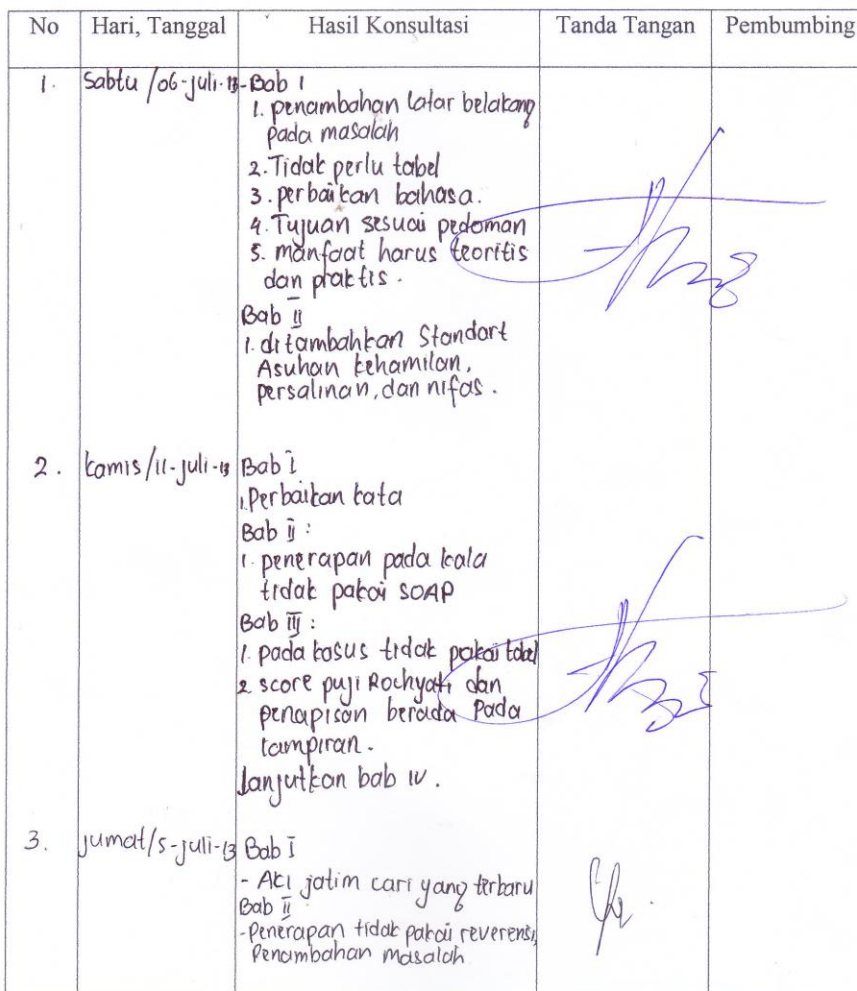 No Hari, Tanggal Hasil Konsultasi Tanda Tangan Pembumbing
1. Sabtu /06-juli-13 - Bab I
1. penambahan latar belakang
pada masalah
2. Tidak perlu tabel
3. perbaikan bahasa.
4. Tujuan sesuai pedoman
5. manfaat harus teoritis
dan praktis.
Bab II
1. ditambahkan Standart
Asuhan kehamilan,
persalinan, dan nifas.
2. kamis/11-juli-13 Bab I
1. Perbaikan kata
Bab II :
1. penerapan pada kala
tidak pakai SOAP
Bab III :
1. pada kasus tidak pakai tabel
2 score puji Rochyati dan
penapisan berada pada
lampiran.
lanjutkan bab IV.
3. jumat/5-juli-13 Bab I
- AKI jatim cari yang terbaru
Bab II
- Penerapan tidak pakai reverensi,
Penambahan masalah